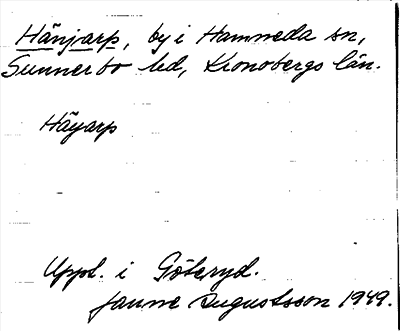 Hänjarp, by i Hamneda sn,
Sunnerbo hd, Kronobergs län.
Häyarp
Uppt. i Göteryd.
Janne Augustsson 1949.